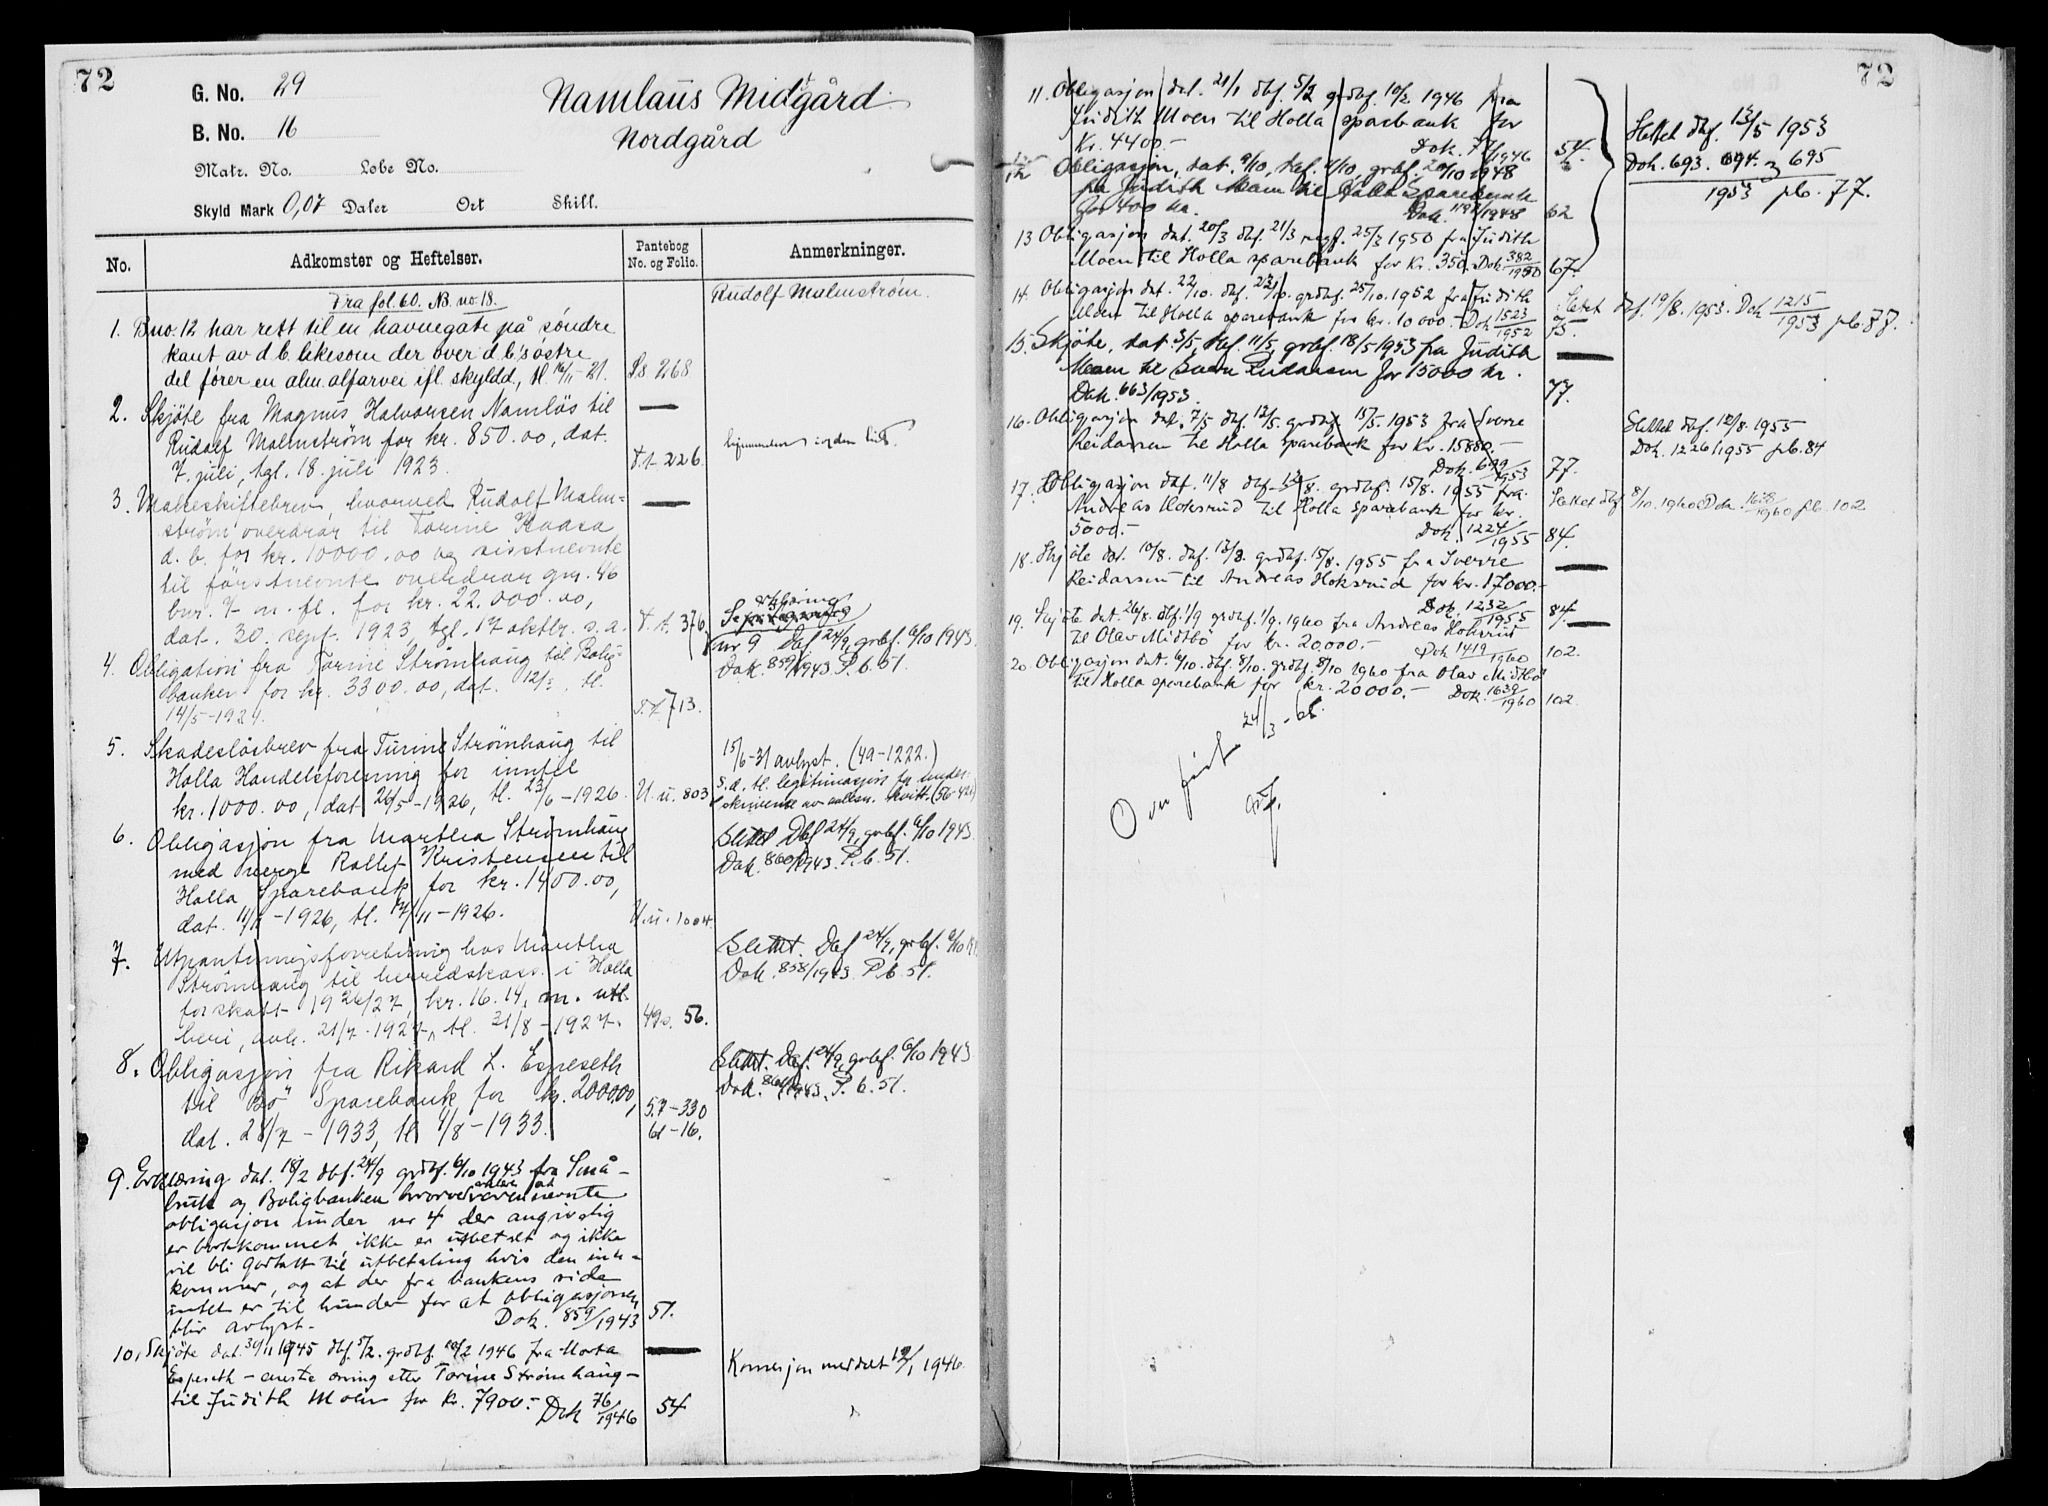 72
G. No. 29
Namlaus Midtgård
B. No. 16
Nordgård
Matr. No. Løbe No.
Skyld Mark 0,07 Daler Ort Skill.
No. Adkomster og Heftelser. Pantebog No. og Folio. Anmerkninger.
Fra fol. 60. NB. no. 18.
Rudolf Malmstrøm.
1. Bno. 12 har rett til en havnegate på søndre
kant av d. b. likesom der over d. b.'s østre
del fører en alm. alfarvei ifl. skyldd., tl. 16/11-21. Ss 268
2. Skjöte fra Magnus Halvorsen Namlös til
Rudolf Malmstrøm for kr. 850.00, dat.
7. juli, tgl. 18. juli 1923. T.t. 226.
3. Makeskiftebrev, hvorved Rudolf Malm-
strøm overdrar til Torine Kaasa
d. b. for kr. 10000.00 og sisstnevnte
til förstnevnte overdrar gnr. 46
bnr. 7 m. fl. for kr. 22.000.00,
dat. 30. sept. 1923, tgl. 17 oktbr. s. a. T.t. 376
4. Obligation fra Torine Strømhaug til Bolig-
banken for kr. 3300.00, dat. 12/5, tl.
14/5-1924. T.t. 713.
Se erklæring
nr 9 Dbf 24/9, grbf. 6/10 1943.
Dok. 859/1943 P.b. 51.
5. Skadeslösbrev fra Turine Strömhaug til
Holla Handelsforening for inntil
kr. 1000.00, dat 26/5-1926, tl. 23/6-1926. U.u. 803
15/6-31 avlyst. (49-1222.)
s.d. tl. legitimasjon for under-
skriverne av kvitt. (56-421)
6. Obligasjon fra Marthea Strømhaug
med verge Rollef Kristensen til
Holla Sparebank for kr. 1400.00,
dat. 11/11-1926, tl. 17/11-1926. U.u. 1004.
Slettet Dbf 24/9, grbf. 6/10 1943.
Dok. 860/1943. P.b. 51.
7. Utpantningsforretning hos Marthea
Strömhaug til herredskass. i Holla
for skatt 1926/27, kr. 16.14, m. utl.
heri, avh. 21/7-1927, tl. 31/8-1927. 49. 56.
Slettet. Dbf 24/9, grbf. 6/10
Dok. 858/1943 P.b. 51.
8. Obligasjon fra Rikard L. Espeseth
til Bö Sparebank for kr. 2000.00,
dat. 28/7-1933, tl. 1/8-1933. 57-330
61-16.
Slettet. Dbf. 24/9, grbf. 6/10 1943
Dok. 861/1943. P.b. 51.
9. Erklæring dat. 18/2 dbf. 24/9 grdbf. 6/10 1943 fra Små-
bruk og Boligbanken hvorved nevnte
obligasjon under nr 4 der angivelig
er bortkommet ikke er utbetalt og ikke
vil bli godtatt til utbetaling hvis den inn-
kommer, og at der fra bankens side
intet er til hinder for at obligasjonen
blir avlyst. Dok. 859/1943 51.
10. Skjöte dat. 30/11 1945 dbf. 5/2. grdbf. 10/2 1946 fra Marta
Espeseth - eneste arving etter Torine Strømhaug -
til Judith Moen for kr. 7900.- Dok 76/1946 54
Konsesjon meddelt 12/1 1946.
72
11. Obligasjon dat. 21/1 dbf. 5/2 grdbf. 10/2 1946 fra
Judith Moen til Holla sparebank for
Kr. 4400.- Dok. 77/1946 54.
12 Obligasjon, dat. 9/10, dbf. 11/10, grbf. 20/10 1948
fra Judith Moen til Holla Sparebank
for 400 kr. Dok. 1192/1948 62
13 Obligasjon dat. 20/3 dbf. 21/3 grdbf. 25/3 1950 fra Judith
Moen til Holla sparebank for kr. 350. Dok 382/1950 67.
Slettet dbf. 13/5 1953
Dok. 693. 694. og 695
1953 pb. 77.
14. Obligasjon dat. 22/10. dbf. 23/10. grdbf. 25/10. 1952 fra Judith
Moen til Holla sparebank for kr. 10 000.- Dok 1523/1952 75.
Slettet dbf. 19/8. 1953. Dok 1215/1953 pb. 77.
15. Skjöte, dat. 5/5, dbf. 11/5, grbf. 18/5-1953 fra Judith
Moen til Sverre Reidarsen for 15000 kr.
Dok. 663/1953. 77.
16. Obligasjon dat. 7/5 dbf. 12/5. grdbf. 15/5. 1953 fra Sverre
Reidarsen til Holla sparebank for kr. 15880.-
Dok. 699/1953 77.
Slettet dbf. 12/8. 1955
Dok. 1226/1955 pb. 84
17. Obligasjon dat. 11/8 dbf. 12/8. grdbf. 15/8. 1955 fra
Andreas Hoksrud til Holla Sparebank for kr.
5000.- Dok. 1224/1955 84.
Slettet dbf 8/10. 1960 Dok. 1638/1960 pb. 102
18. Skjöte dat. 10/8. dbf. 12/8. grdbf. 15/8. 1955 fra Sverre
Reidarsen til Andreas Hoksrud for kr. 17000.-
Dok. 1232/1955 84.
19. Skjöte dat. 26/8. dbf. 1/9 grdbf. 1/9. 1960 fra Andreas Hoksrud
til Olav Midtbö for kr. 20.000.- Dok 1419/1960 102.
20. Obligasjon dat. 6/10. dbf. 8/10. grdbf. 8/10 1960 fra Olav Midtbö
til Holla sparebank for kr. 20000.- Dok. 1639/1960 102.
Overført 24/3-68